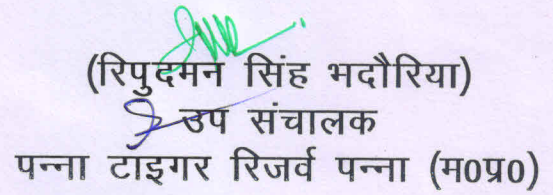 (रिपुदमन सिंह भदौरिया)
उप संचालक
पन्ना टाइगर रिजर्व पन्ना (म0प्र0)